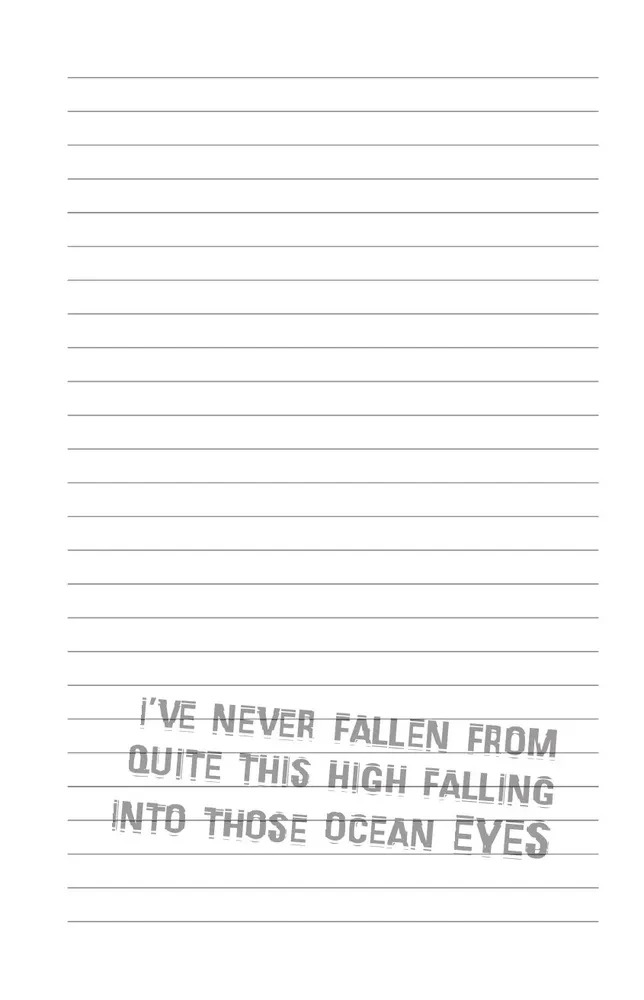 I'VE NEVER FALLEN FROM
QUITE THIS HIGH FALLING
INTO THOSE OCEAN EYES